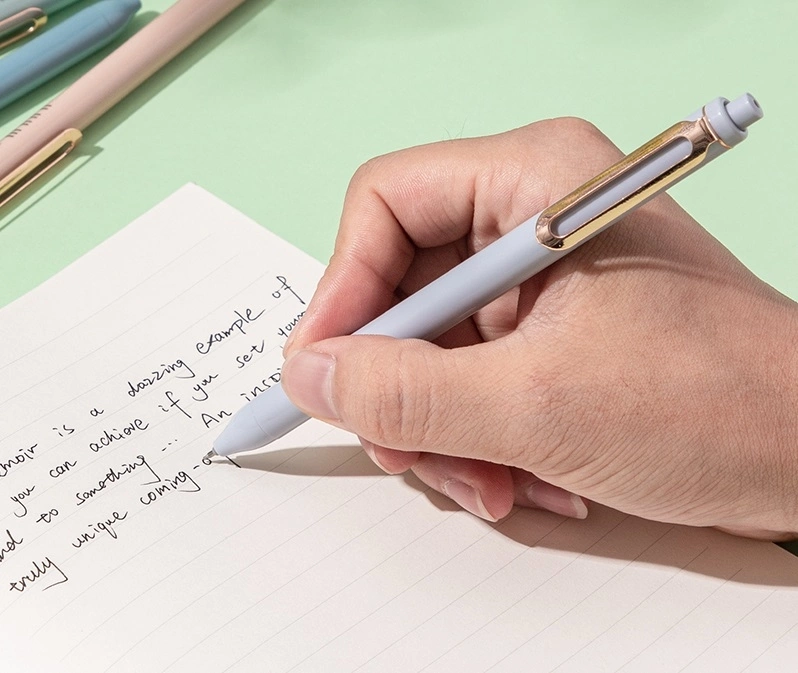 is a dazzling example of
you can achieve if you set your
to something ... An
truly unique coming-o